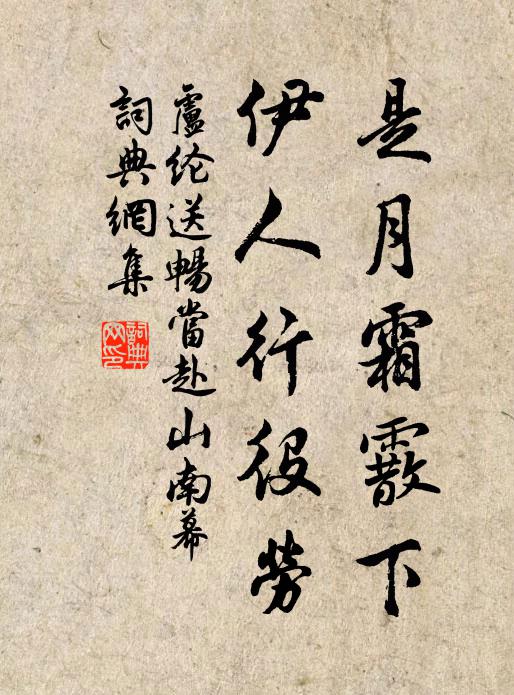 是月霜霰下
伊人行役勞
盧纶送暢當赴山南幕
詞典網集
詞典
网印